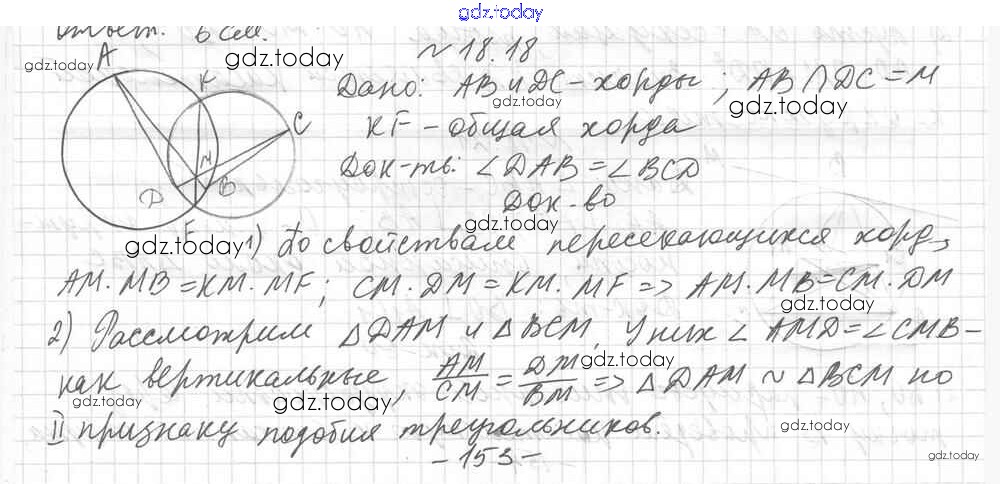 gdz.today
Ответ: 6 см.
№ 18.18
Дано: AB и DC – хорды; AB ∩ DC = M
KF – общая хорда
Док-ть: ∠DAB = ∠BCD
Док-во
A K C M D B F
1) По свойствам пересекающихся хорд,
AM · MB = KM · MF; CM · DM = KM · MF => AM · MB = CM · DM
2) Рассмотрим △DAM и △BCM, у них ∠AMD = ∠CMB –
как вертикальные, AM/CM = DM/BM => △DAM ~ △BCM по
II признаку подобия треугольников.
– 153 –
gdz.today
gdz.today
gdz.today
gdz.today
gdz.today
gdz.today
gdz.today
gdz.today
gdz.today
gdz.today
gdz.today
gdz.today
gdz.today